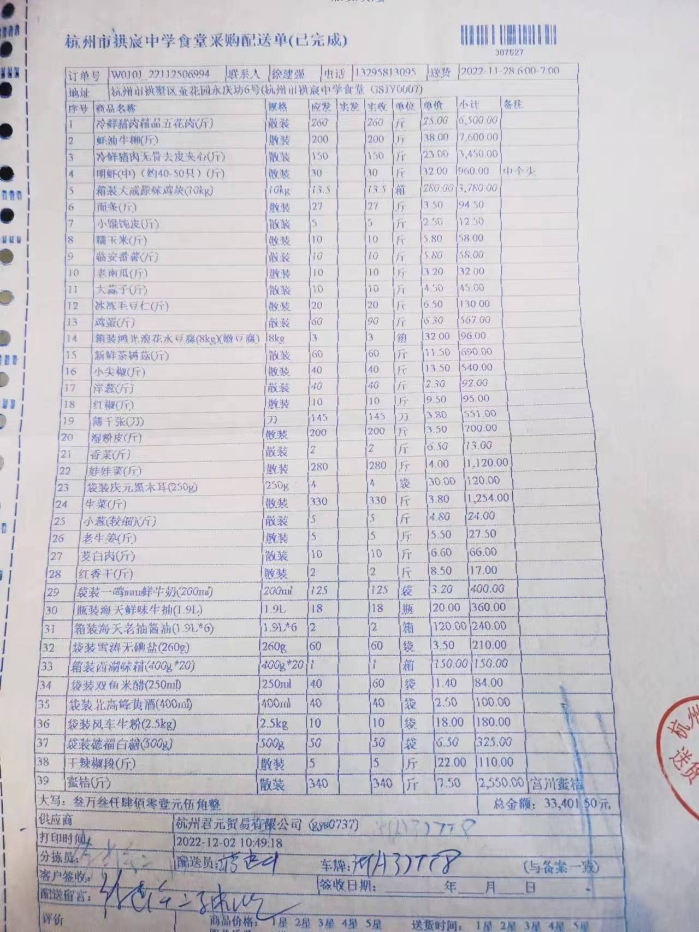 杭州市拱宸中学食堂采购配送单(已完成)
307627
订单号 W0101_22112506994 联系人 徐建强 电话 13295813095 送货 2022-11-28 6:00-7:00
地址 杭州市拱墅区金花园永庆坊6号(杭州市拱宸中学食堂 GSJY0007)
序号 商品名称 规格 应发 实发 实收 单位 单价 小计 备注
1 冷鲜猪肉精品五花肉(斤) 散装 260 260 斤 25.00 6,500.00
2 蚝油牛柳(斤) 散装 200 200 斤 38.00 7,600.00
3 冷鲜猪肉无骨去皮夹心(斤) 散装 150 150 斤 23.00 3,450.00
4 明虾(中)(约40-50只)(斤) 散装 30 30 斤 32.00 960.00 中个头
5 箱装大成原味鸡块(10kg) 10kg 13.5 13.5 箱 280.00 3,780.00
6 面条(斤) 散装 27 27 斤 3.50 94.50
7 小馄饨皮(斤) 散装 5 5 斤 2.50 12.50
8 糯玉米(斤) 散装 10 10 斤 5.80 58.00
9 临安番薯(斤) 散装 10 10 斤 5.80 58.00
10 老南瓜(斤) 散装 10 10 斤 3.20 32.00
11 大蒜子(斤) 散装 10 10 斤 4.50 45.00
12 冰冻毛豆仁(斤) 散装 20 20 斤 6.50 130.00
13 鸡蛋(斤) 散装 60 90 斤 6.30 567.00
14 箱装鸿光浪花水豆腐(8kg)(嫩豆腐) 8kg 3 3 箱 32.00 96.00
15 新鲜茶树菇(斤) 散装 60 60 斤 11.50 690.00
16 小尖椒(斤) 散装 40 40 斤 13.50 540.00
17 洋葱(斤) 散装 40 40 斤 2.30 92.00
18 红椒(斤) 散装 10 10 斤 9.50 95.00
19 薄千张(刀) 刀 145 145 刀 3.80 551.00
20 榴粉皮(斤) 散装 200 200 斤 3.50 700.00
21 香菜(斤) 散装 2 2 斤 6.50 13.00
22 娃娃菜(斤) 散装 280 280 斤 4.00 1,120.00
23 袋装庆元黑木耳(250g) 250g 4 4 袋 30.00 120.00
24 生菜(斤) 散装 330 330 斤 3.80 1,254.00
25 小葱(较细)(斤) 散装 5 5 斤 4.80 24.00
26 老生姜(斤) 散装 5 5 斤 5.50 27.50
27 茭白肉(斤) 散装 10 10 斤 6.60 66.00
28 红香干(斤) 散装 2 2 斤 8.50 17.00
29 袋装一鸣鲜牛奶(200ml) 200ml 125 125 袋 3.20 400.00
30 瓶装海天鲜味生抽(1.9L) 1.9L 18 18 瓶 20.00 360.00
31 箱装海天老抽酱油(1.9L*6) 1.9L*6 2 2 箱 120.00 240.00
32 袋装雪涛无碘盐(260g) 260g 60 60 袋 3.50 210.00
33 箱装西湖味精(400g*20) 400g*20 1 1 箱 150.00 150.00
34 袋装双鱼米醋(250ml) 250ml 40 60 袋 1.40 84.00
35 袋装北高峰黄酒(400ml) 400ml 40 40 袋 2.50 100.00
36 袋装风车生粉(2.5kg) 2.5kg 10 10 袋 18.00 180.00
37 袋装德福白糖(500g) 500g 50 50 袋 6.50 325.00
38 干辣椒段(斤) 散装 5 5 斤 22.00 110.00
39 蜜桔(斤) 散装 340 340 斤 7.50 2,550.00 宫川蜜桔
大写：叁万叁仟肆佰零壹元伍角整 总金额： 33,401.50元
供应商 杭州君元贸易有限公司 (8980737)
打印时间 2022-12-02 10:49:18
分拣员： 配送员： 车牌： (与备案一致)
客户签收： 签收日期： 年 月 日
配送留言：
评价 商品价格： 1星 2星 3星 4星 5星 送货时间： 1星 2星 3星 4星 5星
杭州
送货